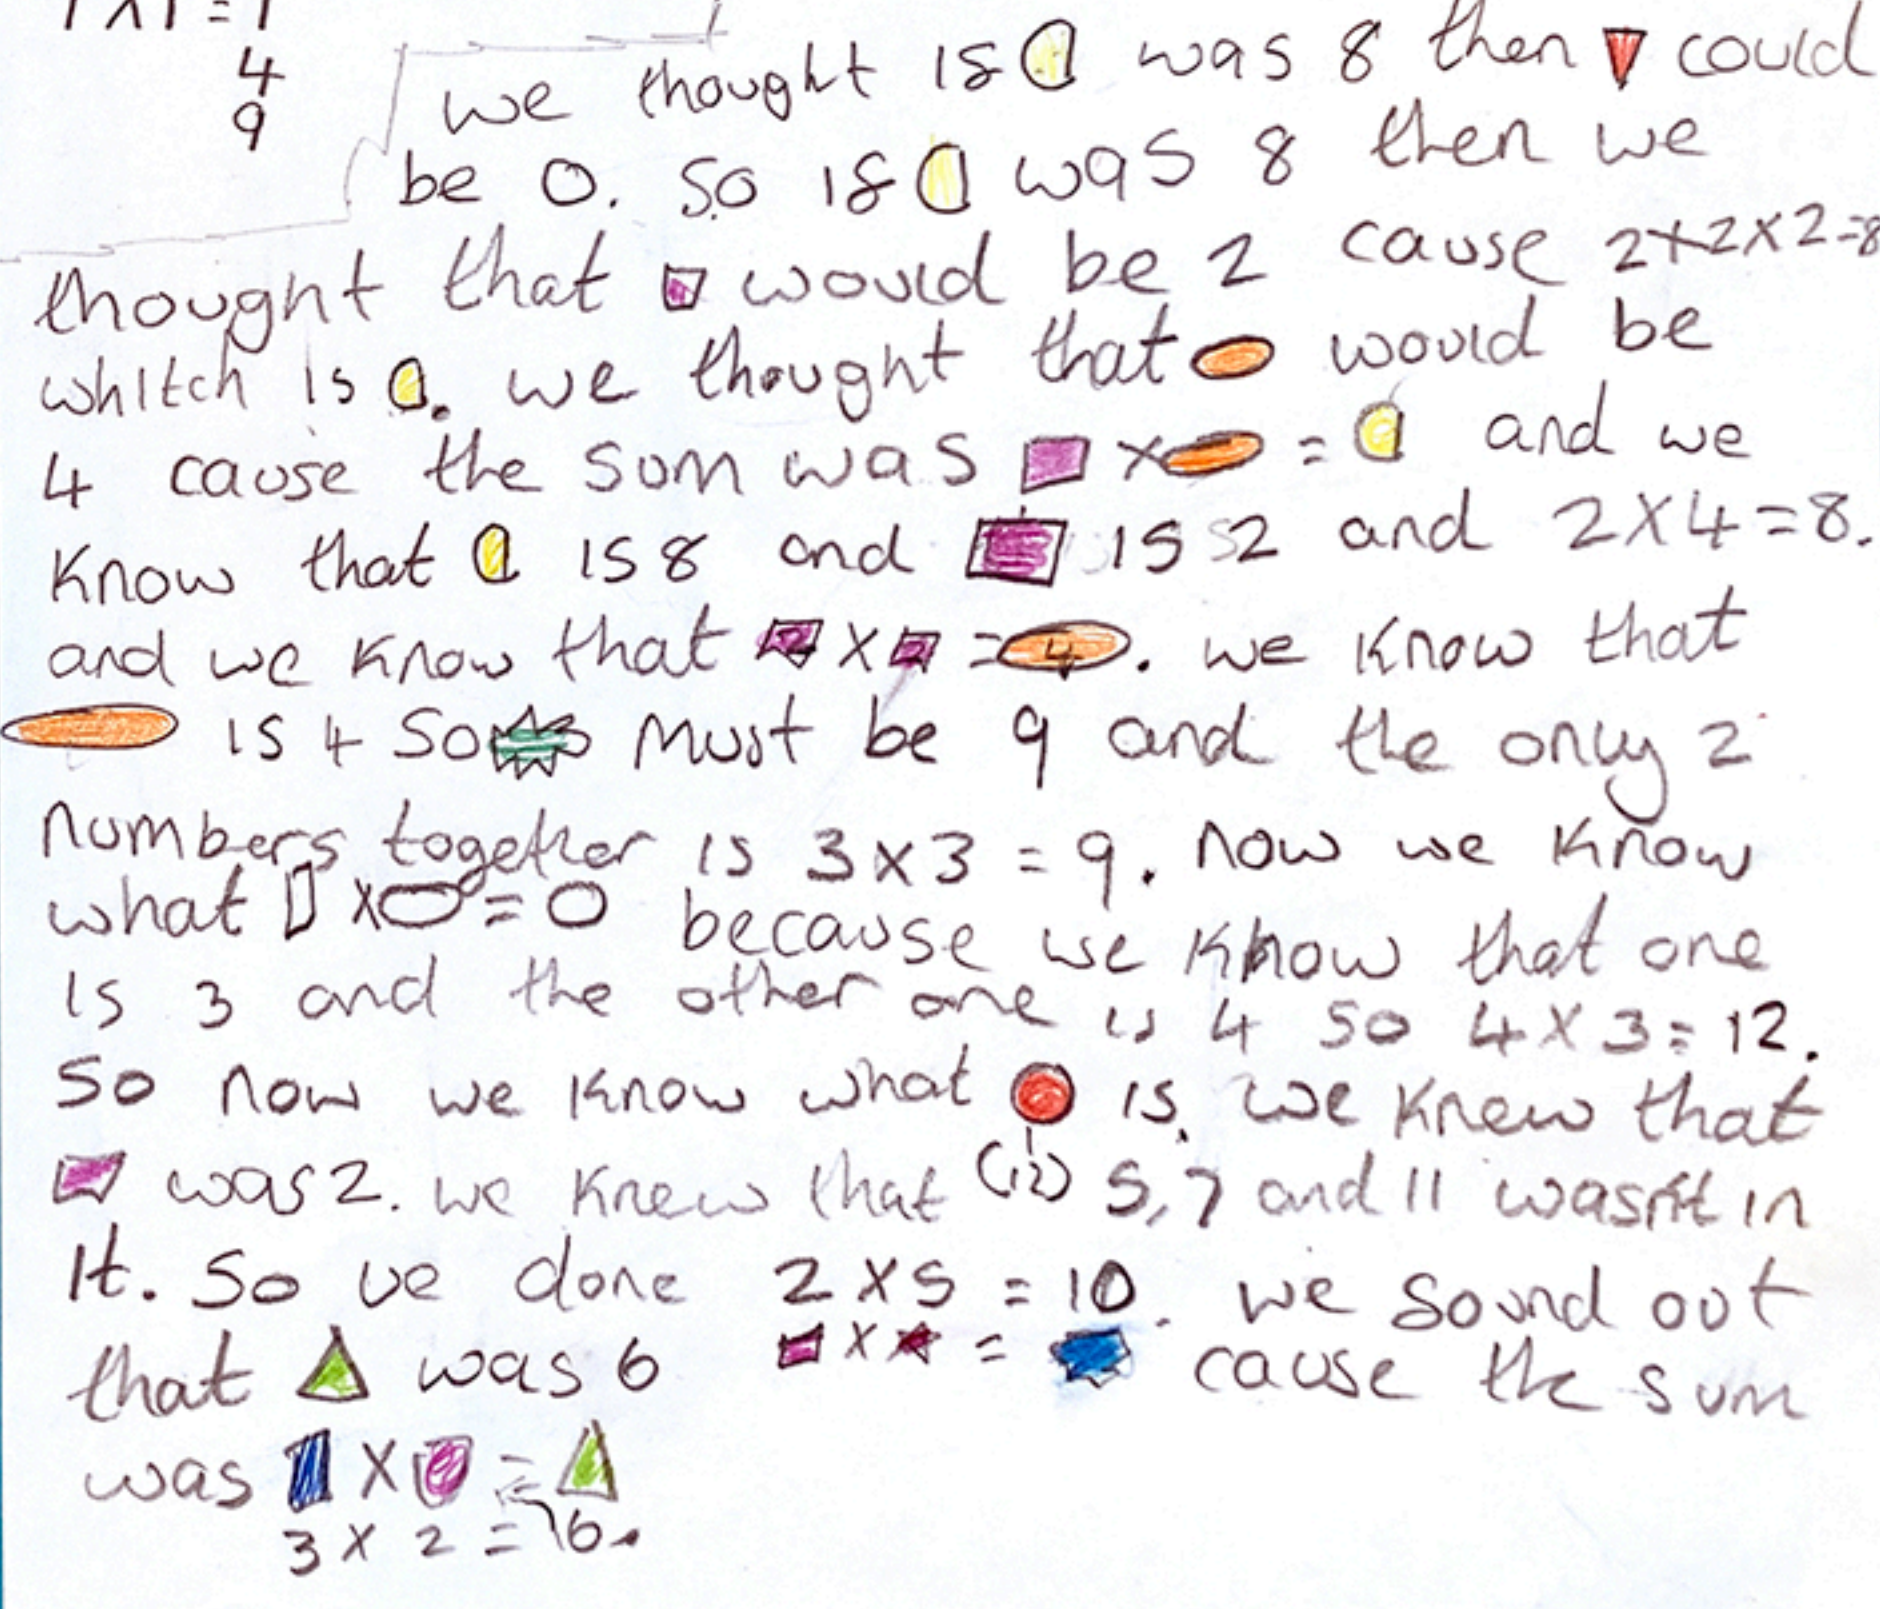 4
9
we thought is was 8 then could
be 0. so is was 8 then we
thought that would be 2 cause 2x2x2=8
whitch is . we thought that would be
4 cause the sum was x = and we
know that is 8 and is 2 and 2x4=8.
and we know that 2 x 2 = 4. we know that
is 4 so must be 9 and the only 2
numbers together is 3x3 = 9. now we know
what x = because we know that one
is 3 and the other one is 4 so 4x3=12.
so now we know what is. we knew that
(12)
was 2. we knew that 5,7 and 11 wasn't in
it. so we done 2x5 = 10. we sound out
that was 6 x = cause the sum
was x =
3 x 2 = 6.